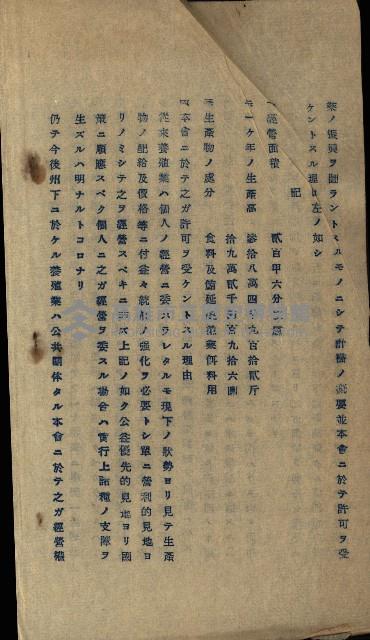 業ノ振興ヲ圖ラントスルモノニシテ計畫ノ概要並本會ニ於テ許可ヲ受
ケントスル理由左ノ如シ
記
經營面積 貳百甲六分
一ケ年ノ生產高 拾八萬四千九百拾貳斤
拾九萬貳千百九拾六圓
生產物ノ處分 食料及餌料用
本會ニ於テ之ガ許可ヲ受ケントスル理由
從來養殖業ハ個人ノ經營ニ委ネラレタルモ現下ノ狀勢ヨリ見テ生產
物ノ配給及價格等ニ付益々統制ノ強化ヲ必要トシ單ニ營利的見地ヨ
リノミシテ之ヲ經營スベキニ非ズ上記ノ如ク公益優先的見地ヨリ國
策ニ順應スベク個人ニ之ガ經營ヲ委スル場合ハ實行上諸種ノ支障ヲ
生ズルハ明ナルトコロナリ
仍テ今後州下ニ於ケル養殖業ハ公共團体タル本會ニ於テ之ガ經營權